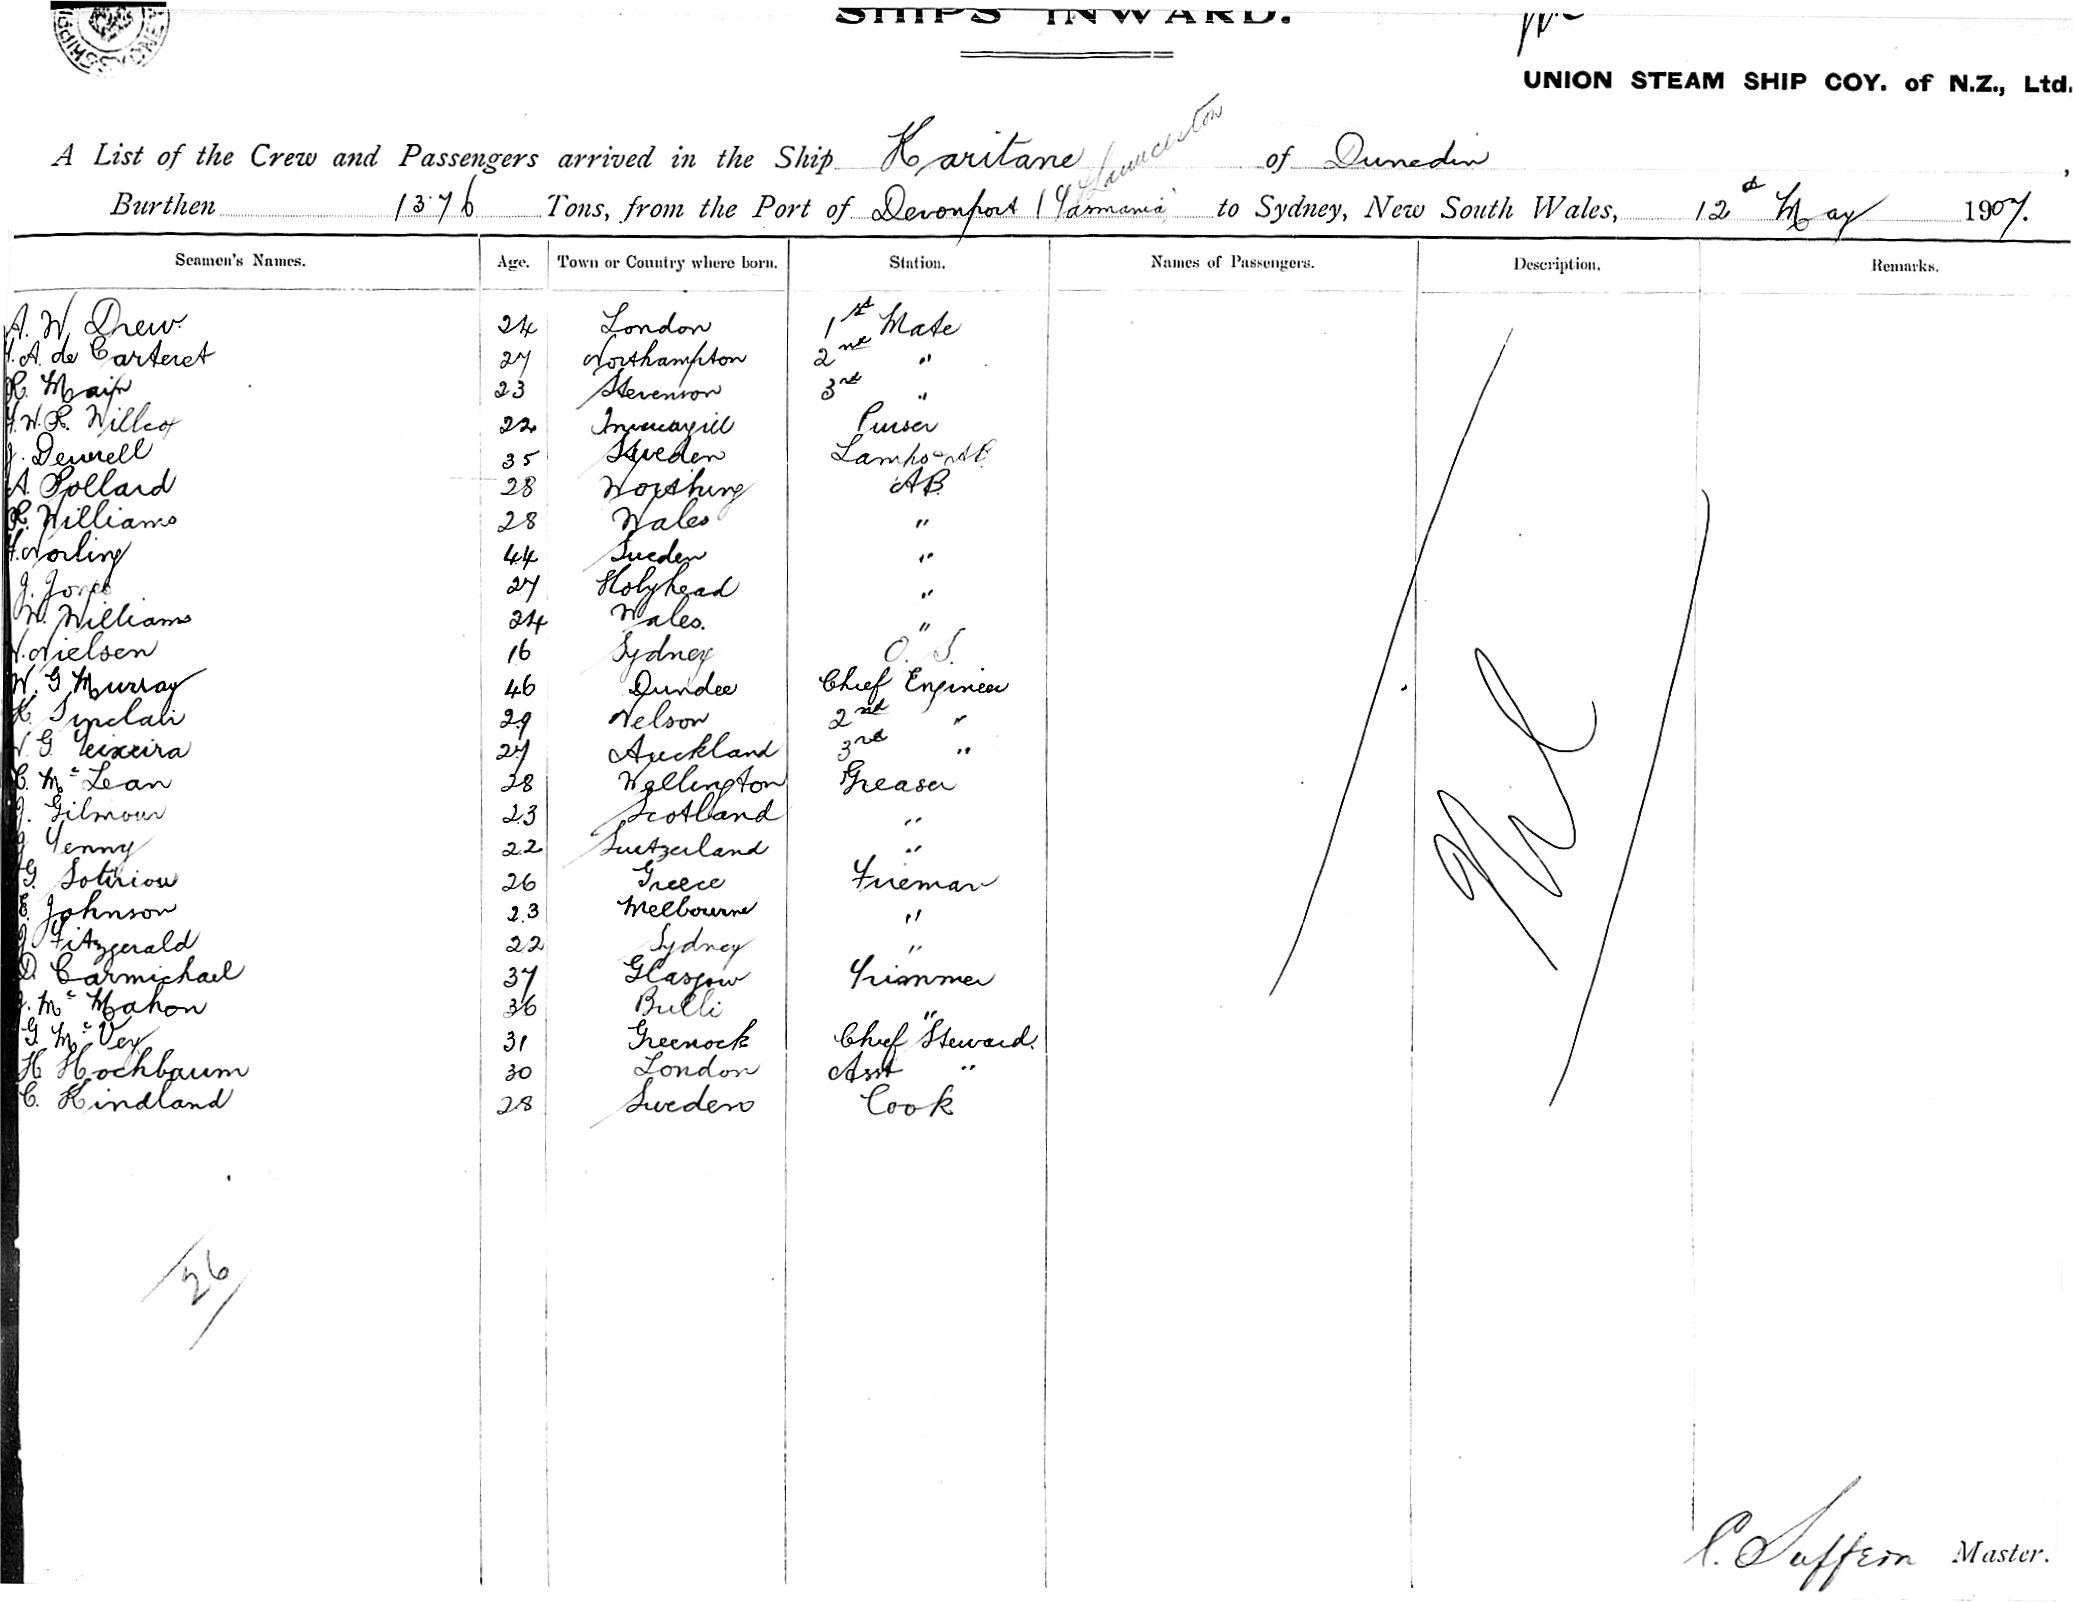 SHIPS INWARD.
UNION STEAM SHIP COY. of N.Z., Ltd.
Launceston
A List of the Crew and Passengers arrived in the Ship Karitane of Dunedin,
Burthen 1376 Tons, from the Port of Devonport (Tasmania) to Sydney, New South Wales, 12th May 1907.
Seamen's Names. Age. Town or Country where born. Station. Names of Passengers. Description. Remarks.
A. W. Drew 24 London 1st Mate
A. de Carteret 27 Northampton 2nd "
R. Main 23 Stevenson 3rd "
W. R. Willcox 22 Invercargill Purser
J. Dewrell 35 Sweden Lamps & AB
A. Pollard 28 Worthing AB
R. Williams 28 Wales "
Norling 44 Sweden "
J. Jones 27 Holyhead "
W. Williams 24 Wales. "
Nielsen 16 Sydney O. S.
W. G Murray 46 Dundee Chief Engineer
Sinclair 29 Nelson 2nd "
G. Teixeira 27 Auckland 3rd "
Mc Lean 28 Wellington Greaser
Gilmour 23 Scotland "
Yenny 22 Switzerland "
G. Sotiriou 26 Greece Fireman
E. Johnson 23 Melbourne "
J Fitzgerald 22 Sydney "
D. Carmichael 37 Glasgow Trimmer
J. Mc Mahon 36 Bulli "
G. Mc Vey 31 Greenock Chief Steward.
H Hochbaum 30 London Asst "
C. Kindland 28 Sweden Cook
Nil
26
C. Suffern Master.